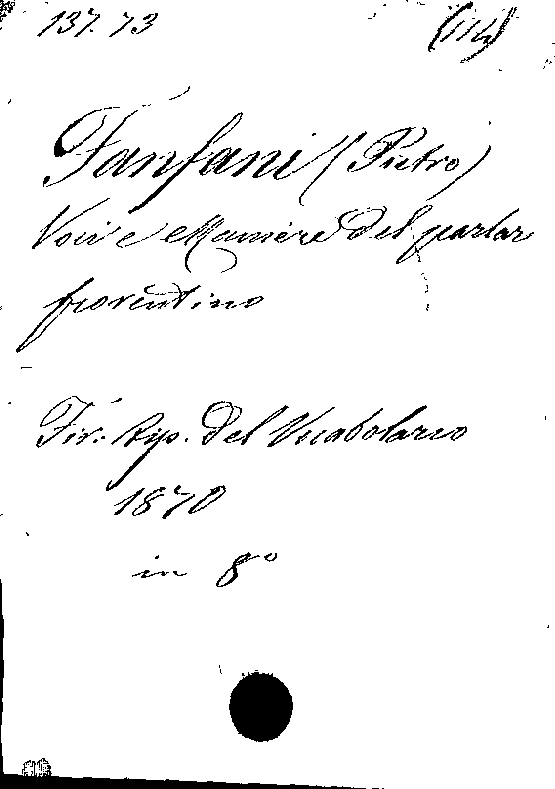 137.73 (114)
Fanfani (Pietro)
Voci e Maniere del parlar
fiorentino
Fir. Tip. del Vocabolario
1870
in 8º